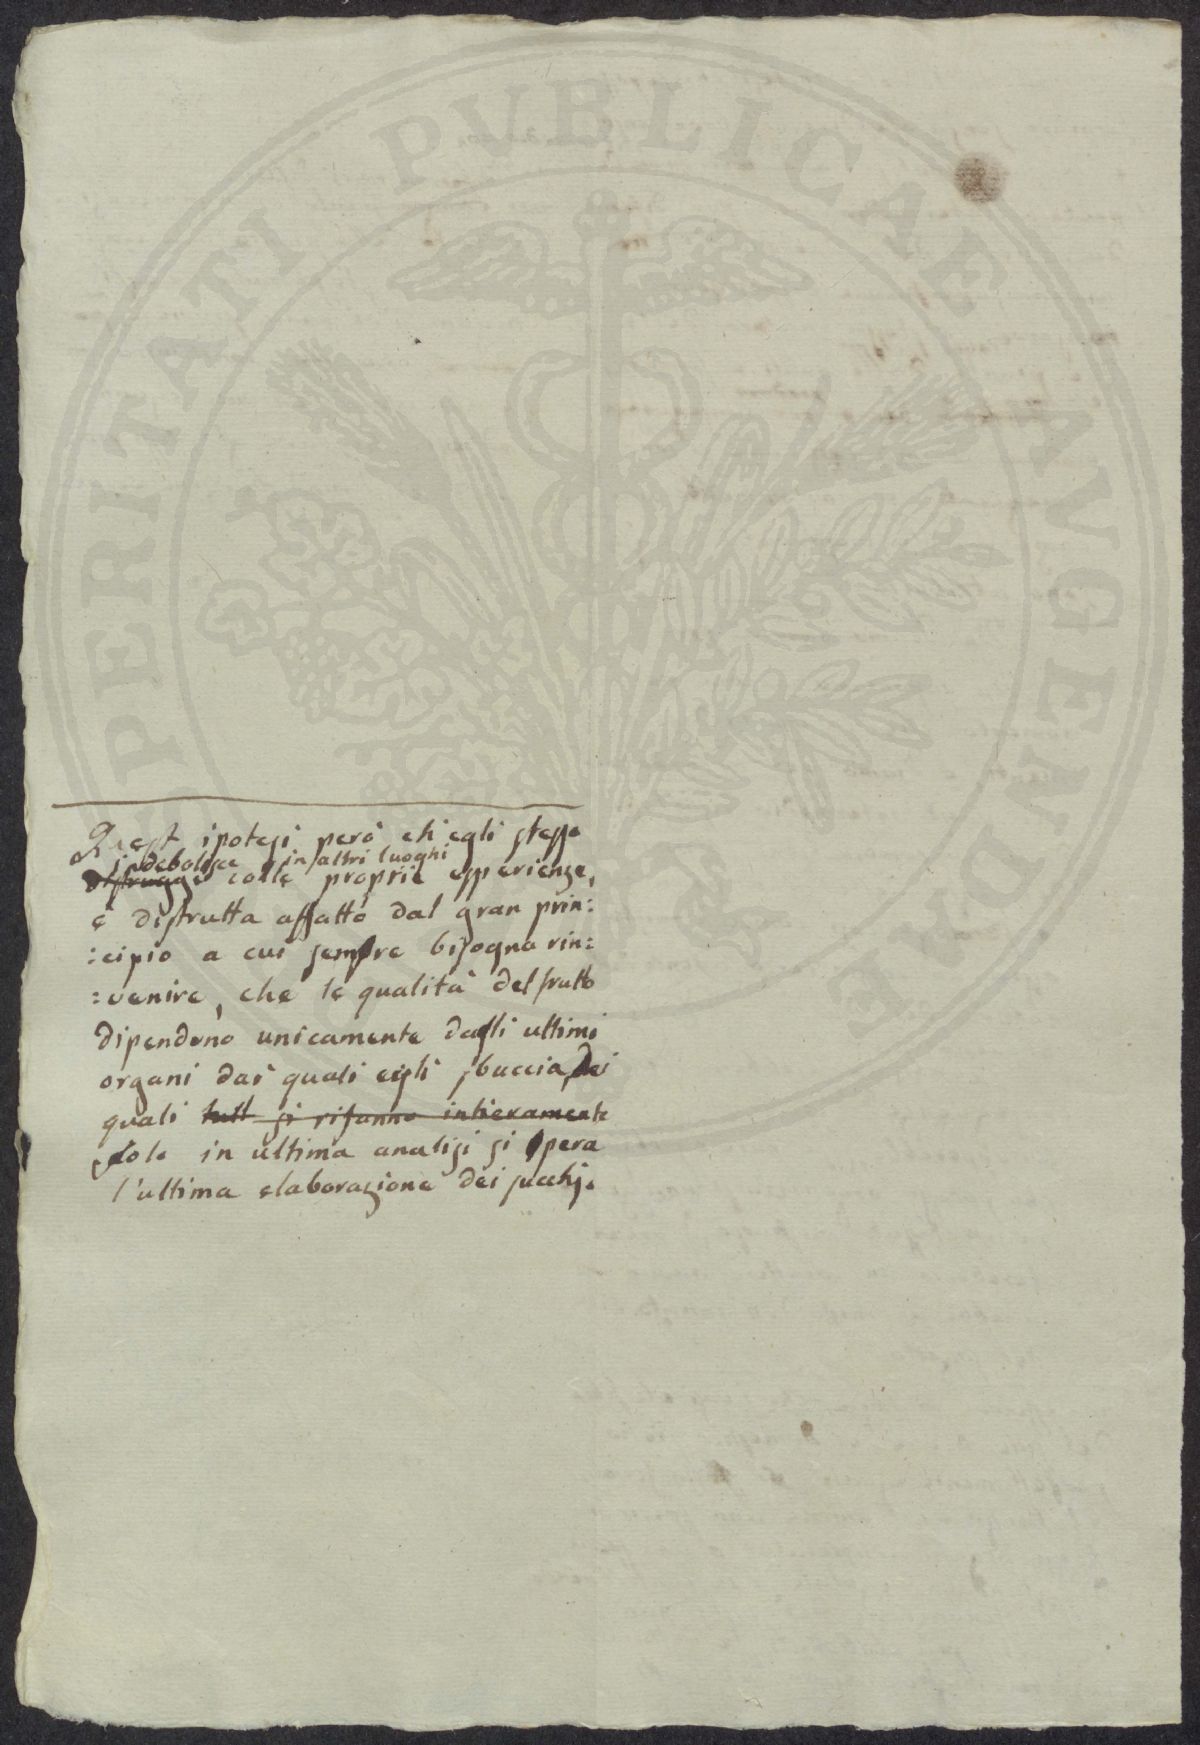 PROSPERITATI PVBLICAE AVGENDAE
Quest ipotesi però ch'egli stesso
indebolisce in altri luoghi
distrugge colle proprie esperienze,
è distrutta affatto dal gran prin:
:cipio a cui sempre bisogna rin:
:venire, che le qualità del frutto
dipendono unicamente dagli ultimi
organi dai quali egli sbuccia, dei
quali tutt si rifanno intieramente
solo in ultima analisi si opera
l'ultima elaborazione dei succhj.